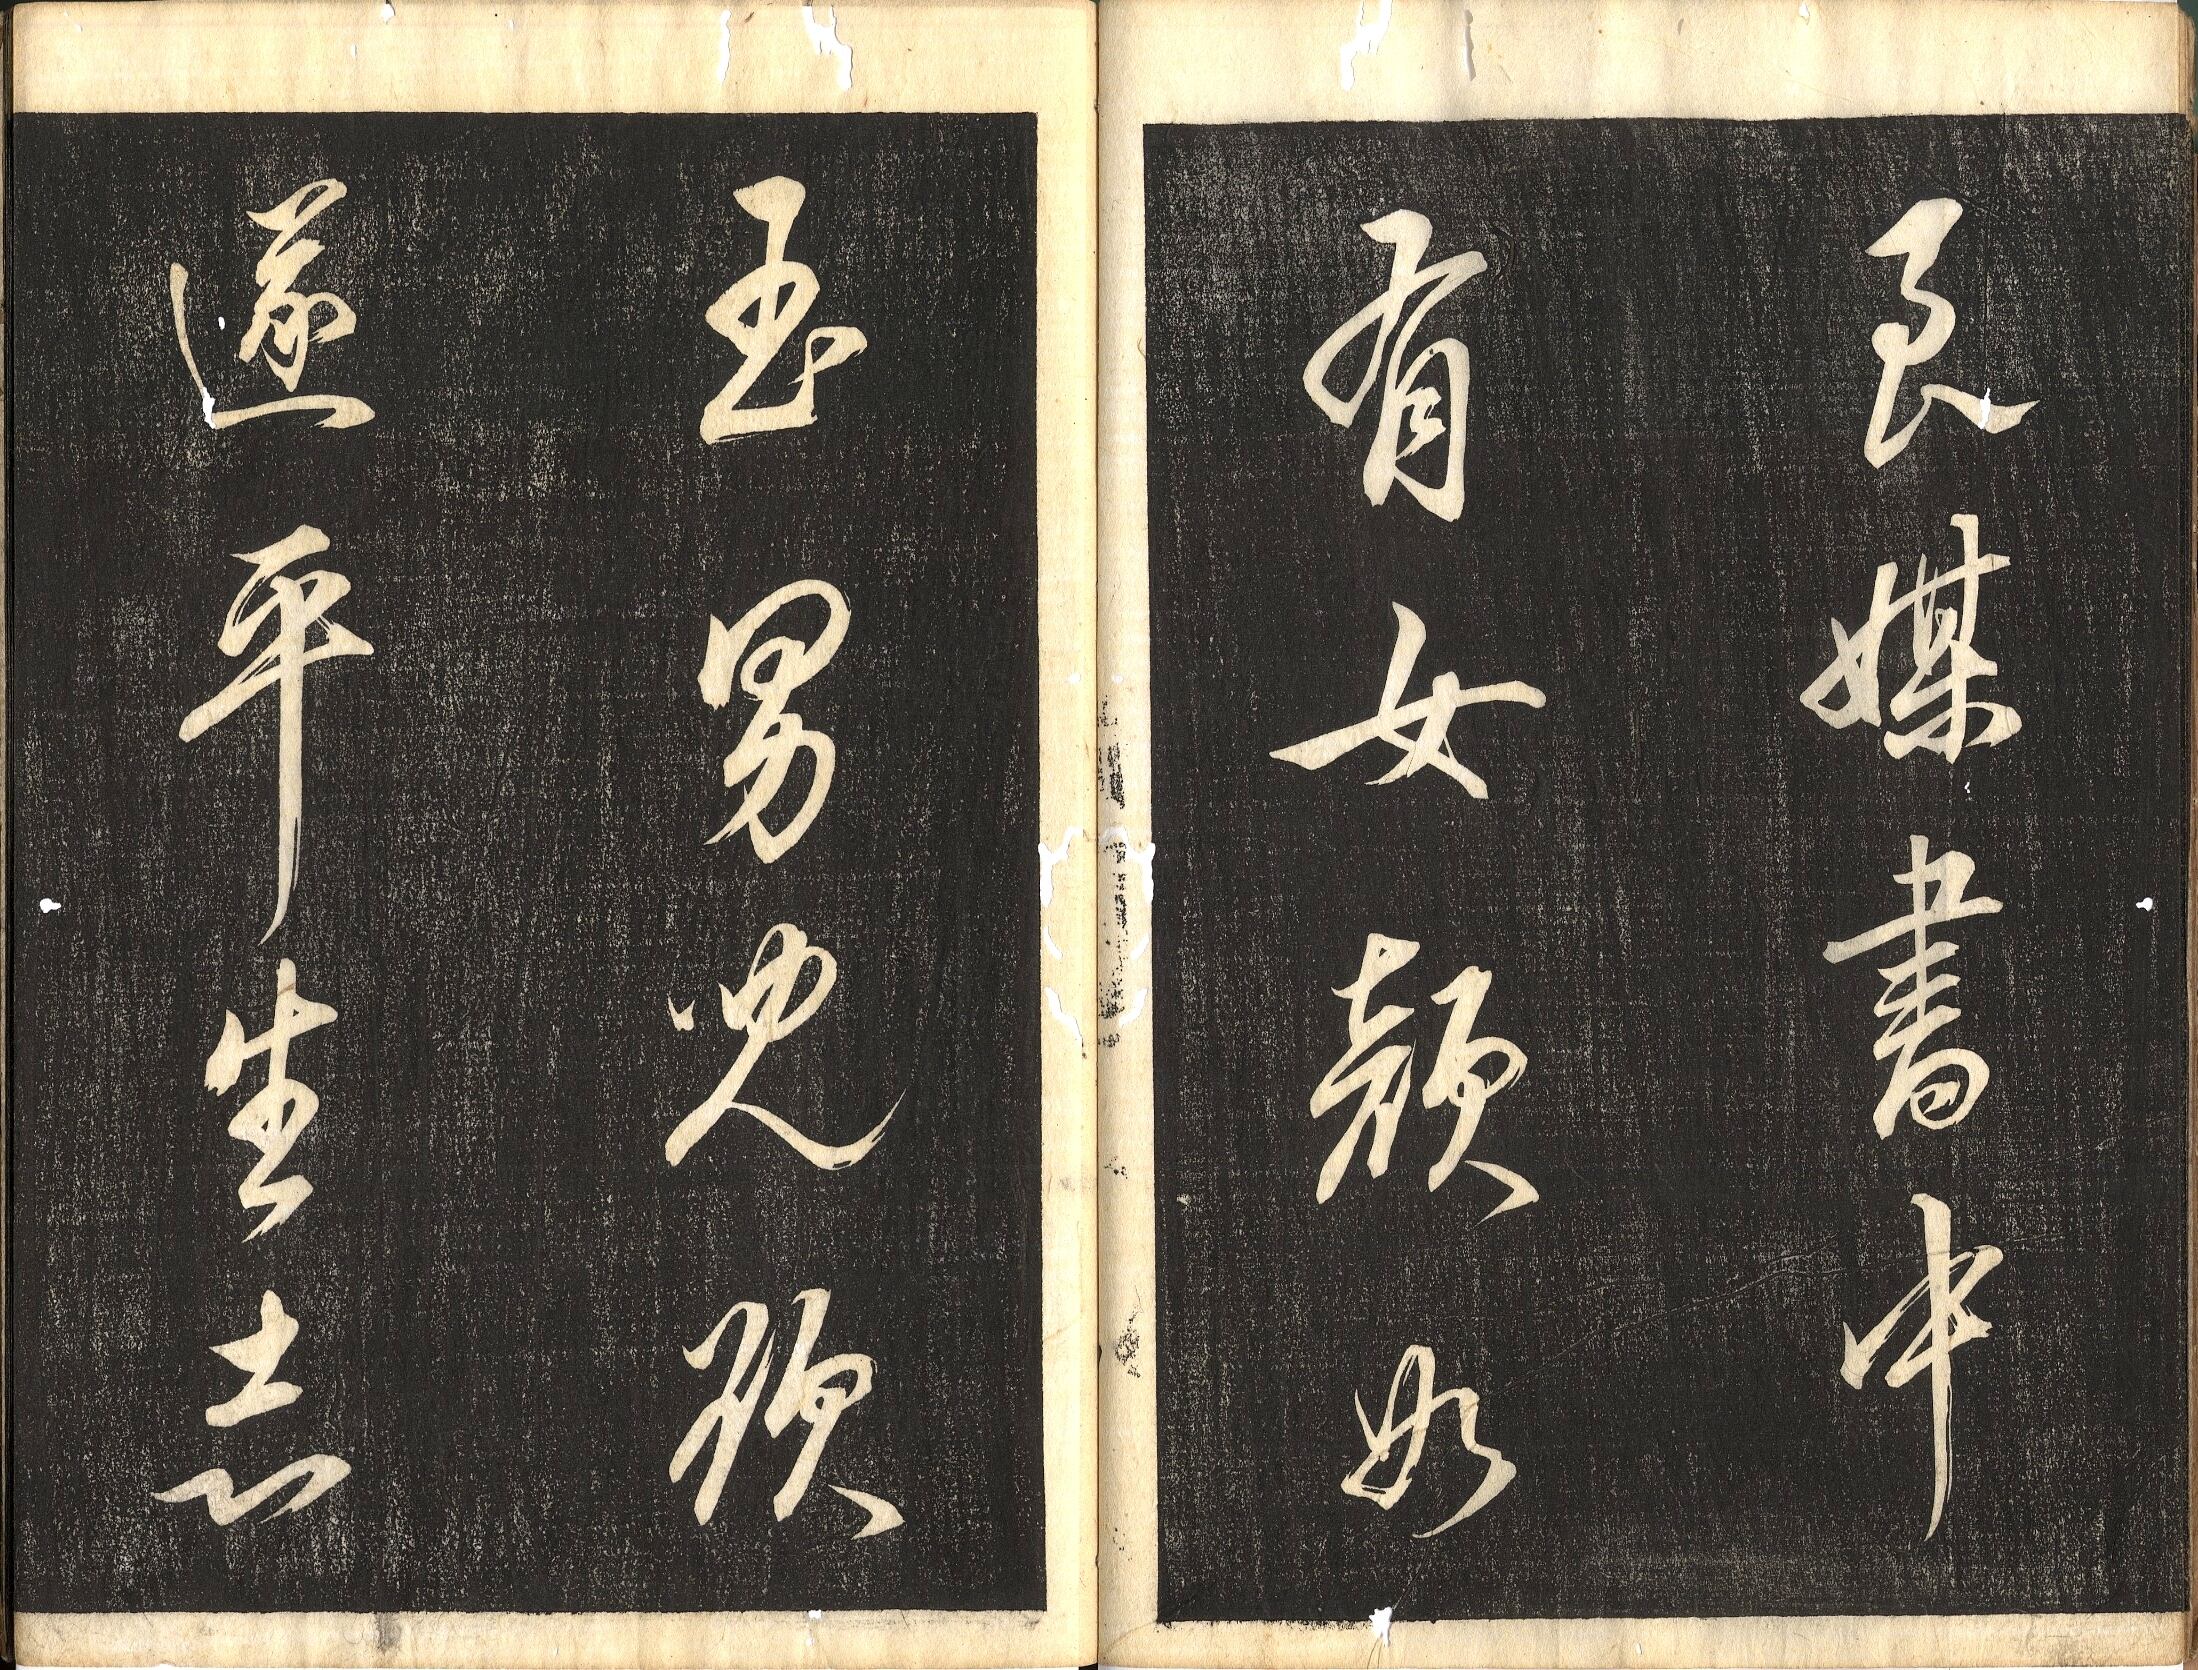 良媒書中
有女顏如
玉男兒欲
遂平生志